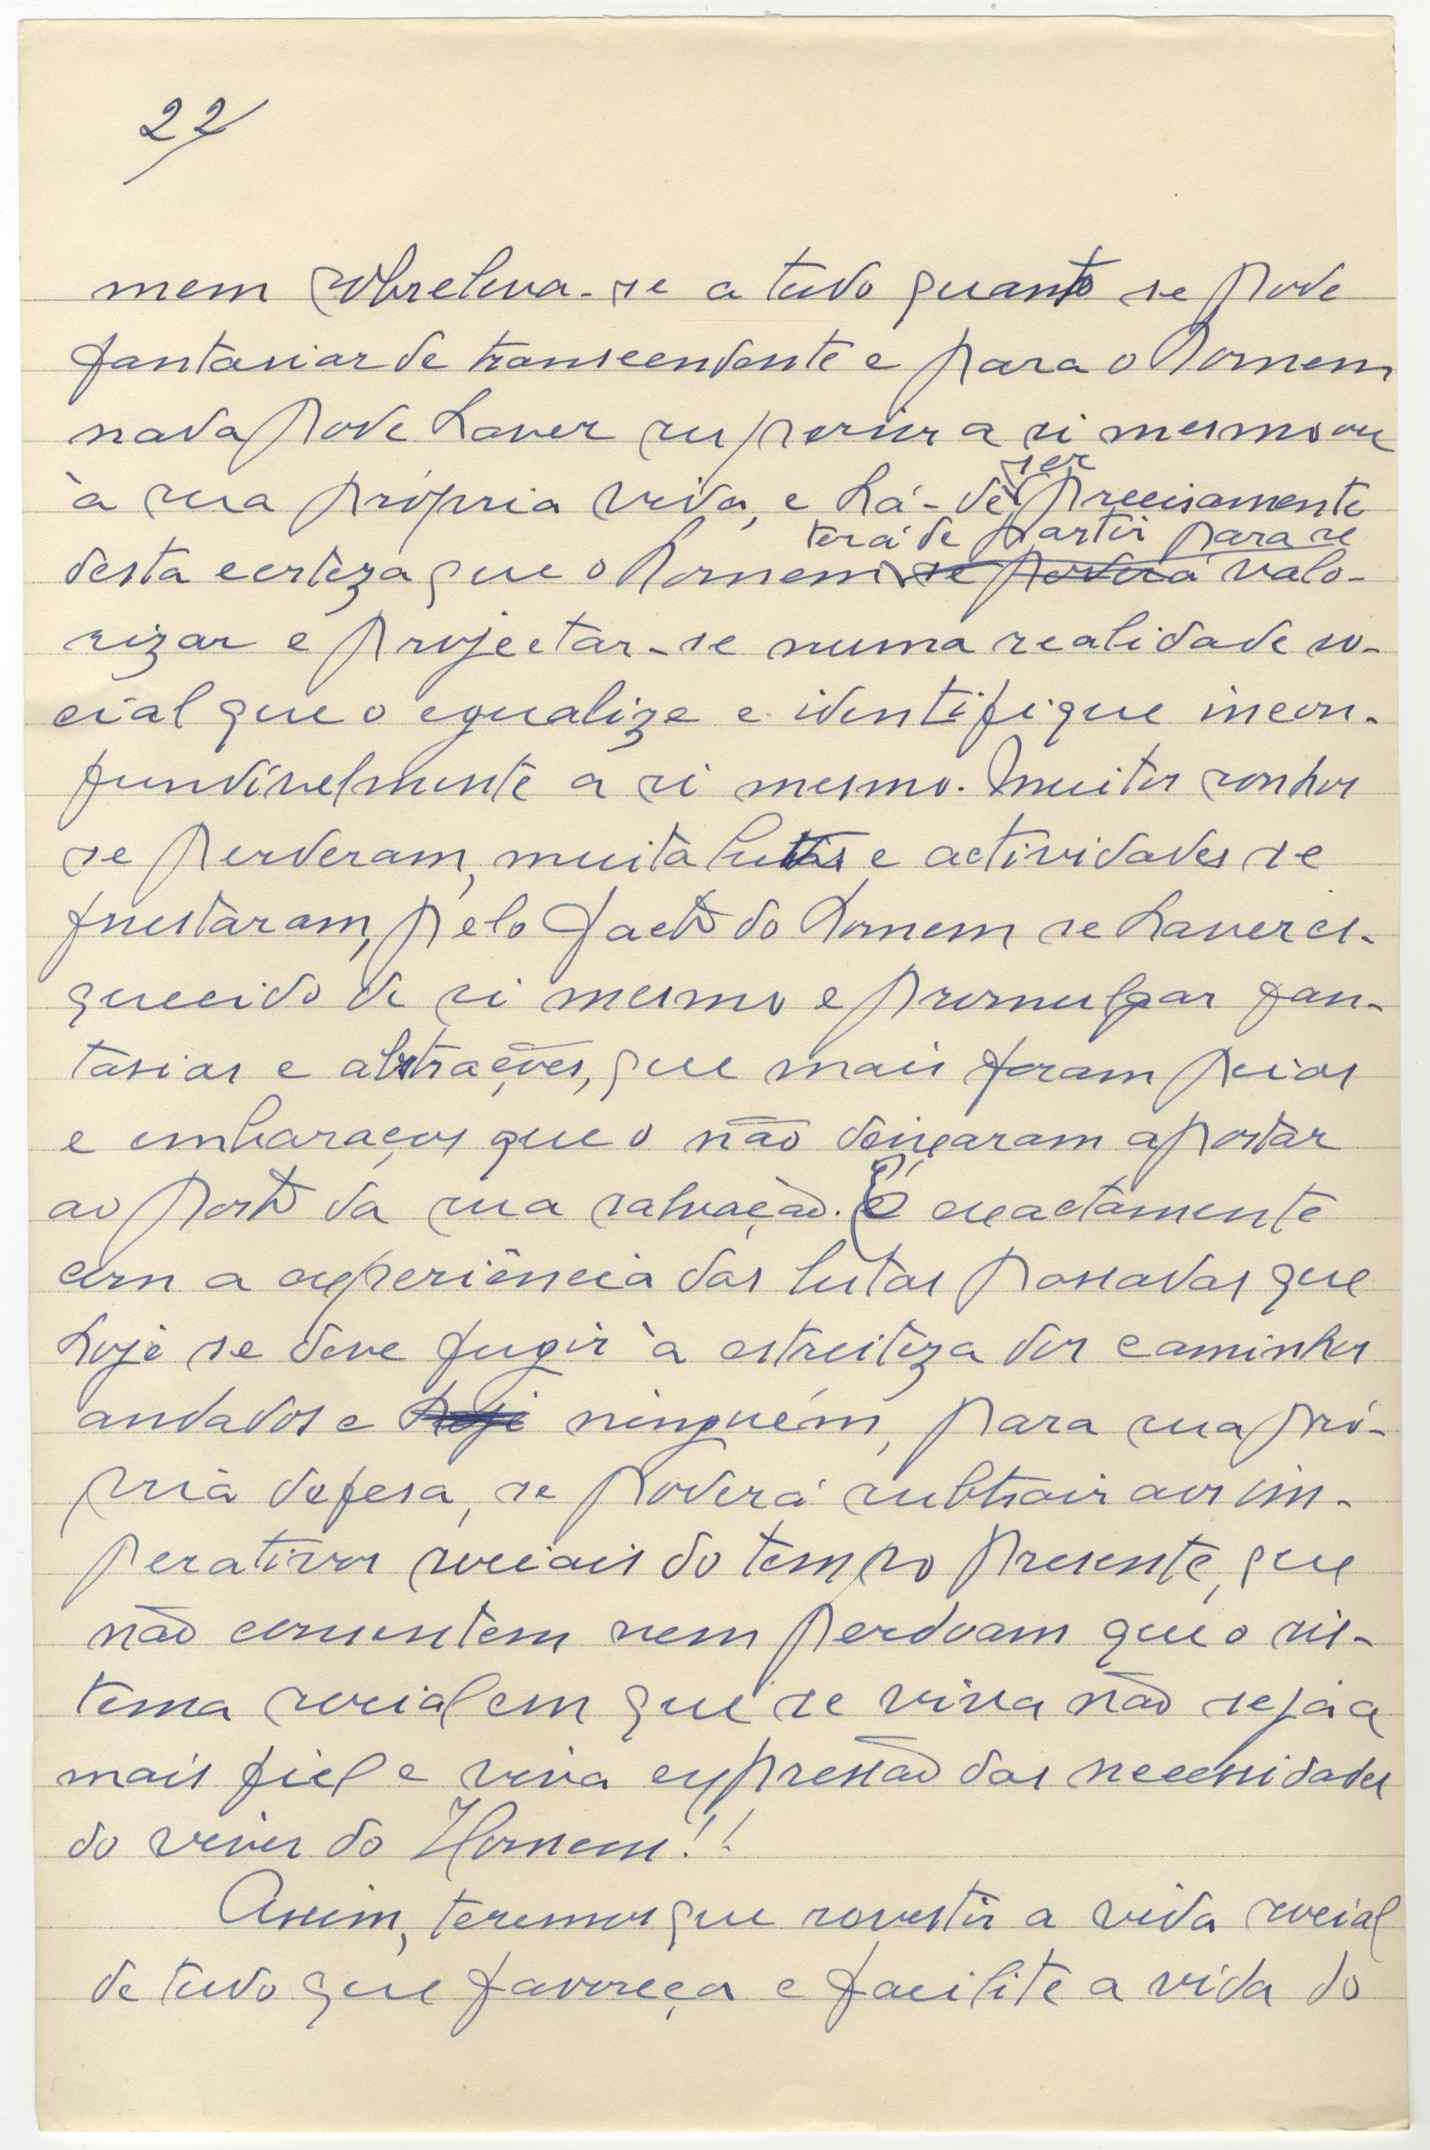 22/
mem sobreleva-se a tudo quanto se pode
fantasiar de transcendente e para o homem
nada pode haver superior a si mesmo ou
à sua própria vida, e há-de ser precisamente
terá de partir para se
desta certeza que o homem se poderá valo-
rizar e projectar-se numa realidade so-
cial que o egualize e identifique incon-
fundívelmente a si mesmo. Muitos sonhos
se perderam, muita lutas e actividades se
frustaram, pelo facto do homem se haver es-
quecido de si mesmo e promulgar fan-
tasias e abstrações, que mais foram peias
e embaraços que o não deixaram aportar
ao porto da sua salvação. É exactamente
com a experiência das lutas passadas que
hoje se deve fugir à estreiteza dos caminhos
andados e hoje ninguém, para sua pró-
pria defesa, se poderá subtrair aos im-
perativos sociais do tempo presente, que
não consentem nem perdoam que o sis-
tema social em que se viva não seja a
mais fiel e viva expressão das necessidades
do viver do Homem!!
Assim, teremos que revestir a vida social
de tudo que favoreça e facilite a vida do